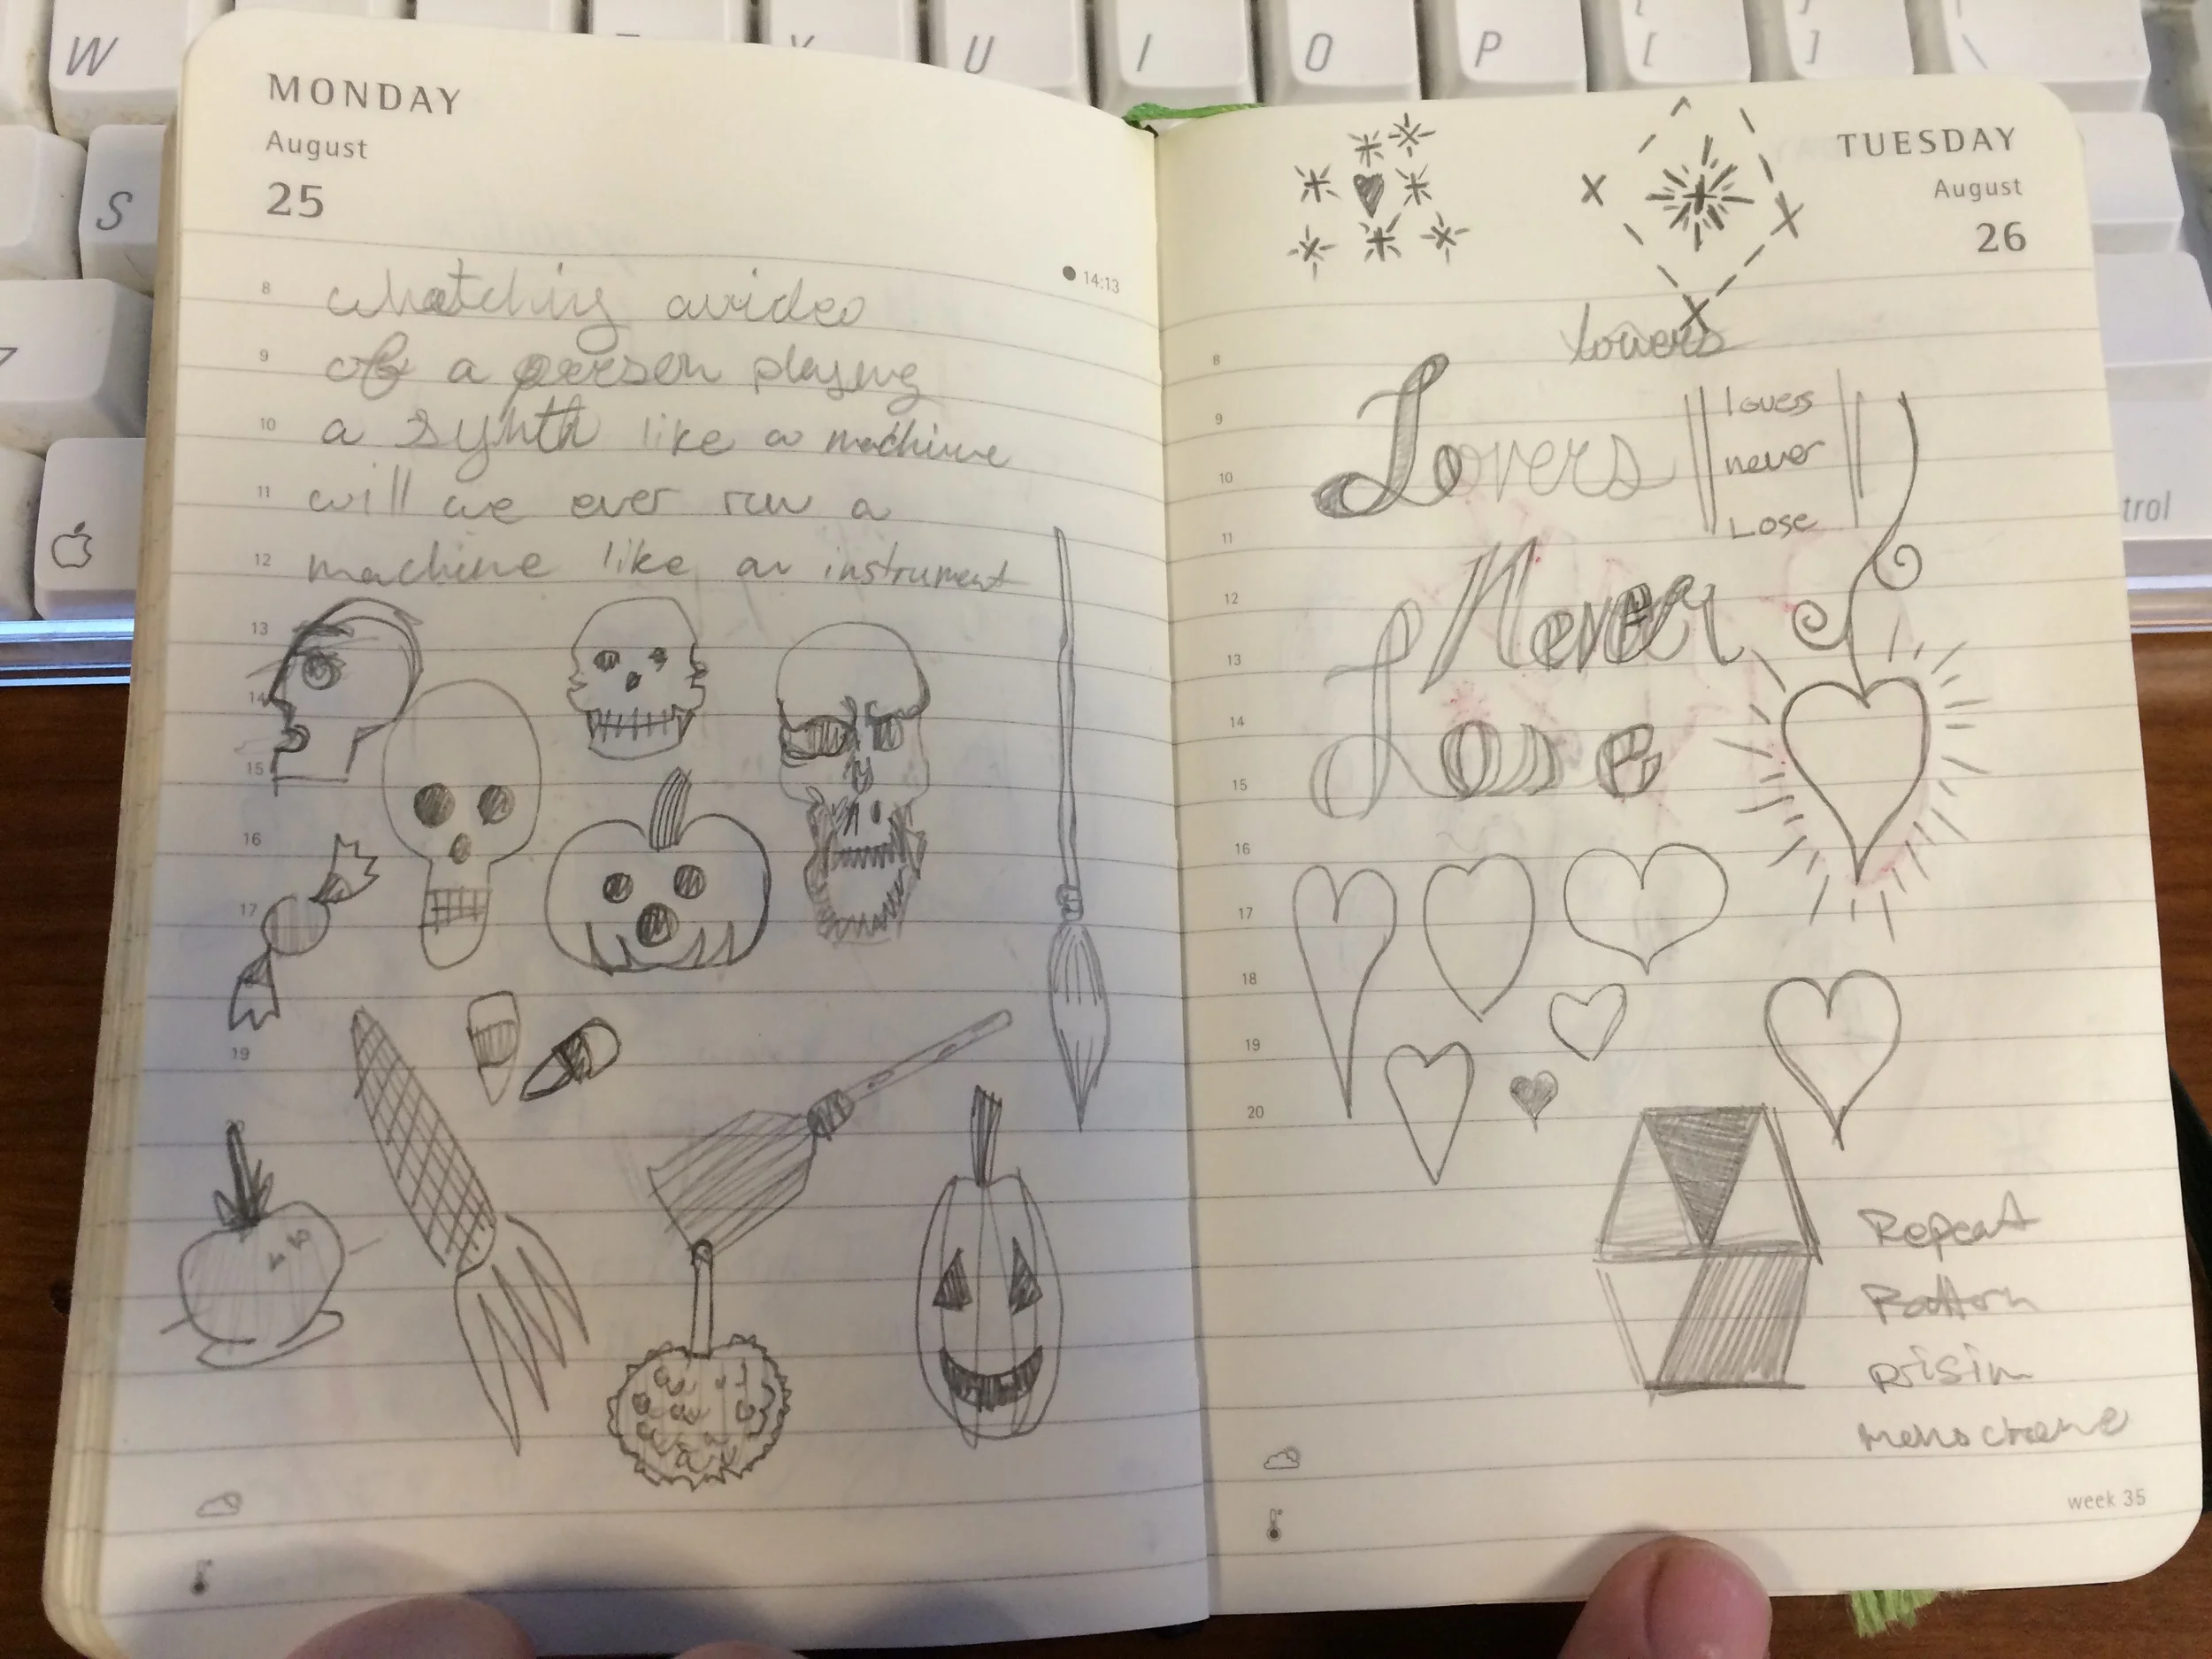 W
Y
U
I
O
P
[
[
]
]
\
S
trol
MONDAY
August
25
14:13
8 whatching a video
9 of a person playing
10 a synth like a machine
11 will we ever run a
12 machine like an instrument
13
14
15
16
17
19
TUESDAY
August
26
lovers
8
9 Lovers lovers
10 never
11 Lose
12 Never
13
14 Lose
15
16
17
18
19
20
Repeat
Pattern
prisim
week 35